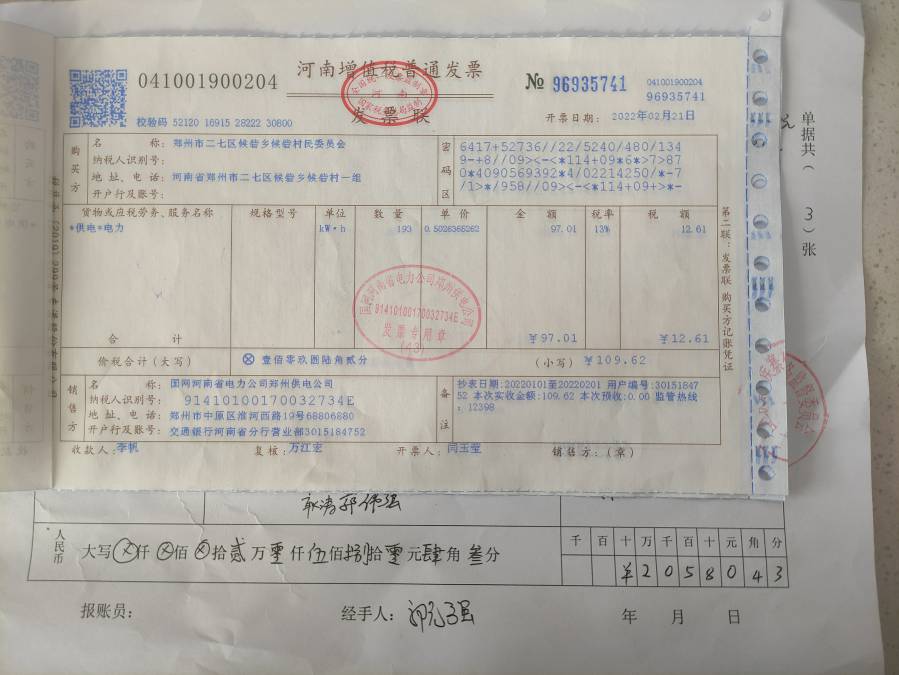 河南增值税普通发票
041001900204
№ 96935741
041001900204
96935741
发票联
校验码 52120 16915 28222 30800
开票日期： 2022年02月21日
购买方
名称： 郑州市二七区候砦乡候砦村民委员会
纳税人识别号：
地址、电话： 河南省郑州市二七区候砦乡候砦村一组
开户行及账号：
密码区
6417+52736//22/5240/480/134
9-+8//09><-<*114+09*6*>7>87
0*4090569392*4/02214250/*-7
/1>*/958//09><-<*114+09+>*-
货物或应税劳务、服务名称 规格型号 单位 数量 单价 金额 税率 税额
*供电*电力 kW·h 193 0.5026365262 97.01 13% 12.61
合计 ￥97.01 ￥12.61
价税合计（大写） ⊗ 壹佰零玖圆陆角贰分 （小写） ￥109.62
销售方
名称： 国网河南省电力公司郑州供电公司
纳税人识别号： 91410100170032734E
地址、电话： 郑州市中原区淮河西路19号68806880
开户行及账号： 交通银行河南省分行营业部3015184752
备注
抄表日期:20220101至20220201 用户编号:30151847
52 本次实收金额:109.62 本次预收:0.00 监管热线
：12398
收款人： 李帆 复核： 万江宏 开票人： 闫玉莹 销售方：（章）
第二联：发票联 购买方记账凭证
国网河南省电力公司郑州供电公司
91410100170032734E
发票专用章
单据共（3）张
人民币
大写⊗仟⊗佰⊗拾贰万零仟伍佰捌拾零元肆角叁分
千 百 十 万 千 百 十 元 角 分
￥ 2 0 5 8 0 4 3
报账员： 经手人： 年 月 日